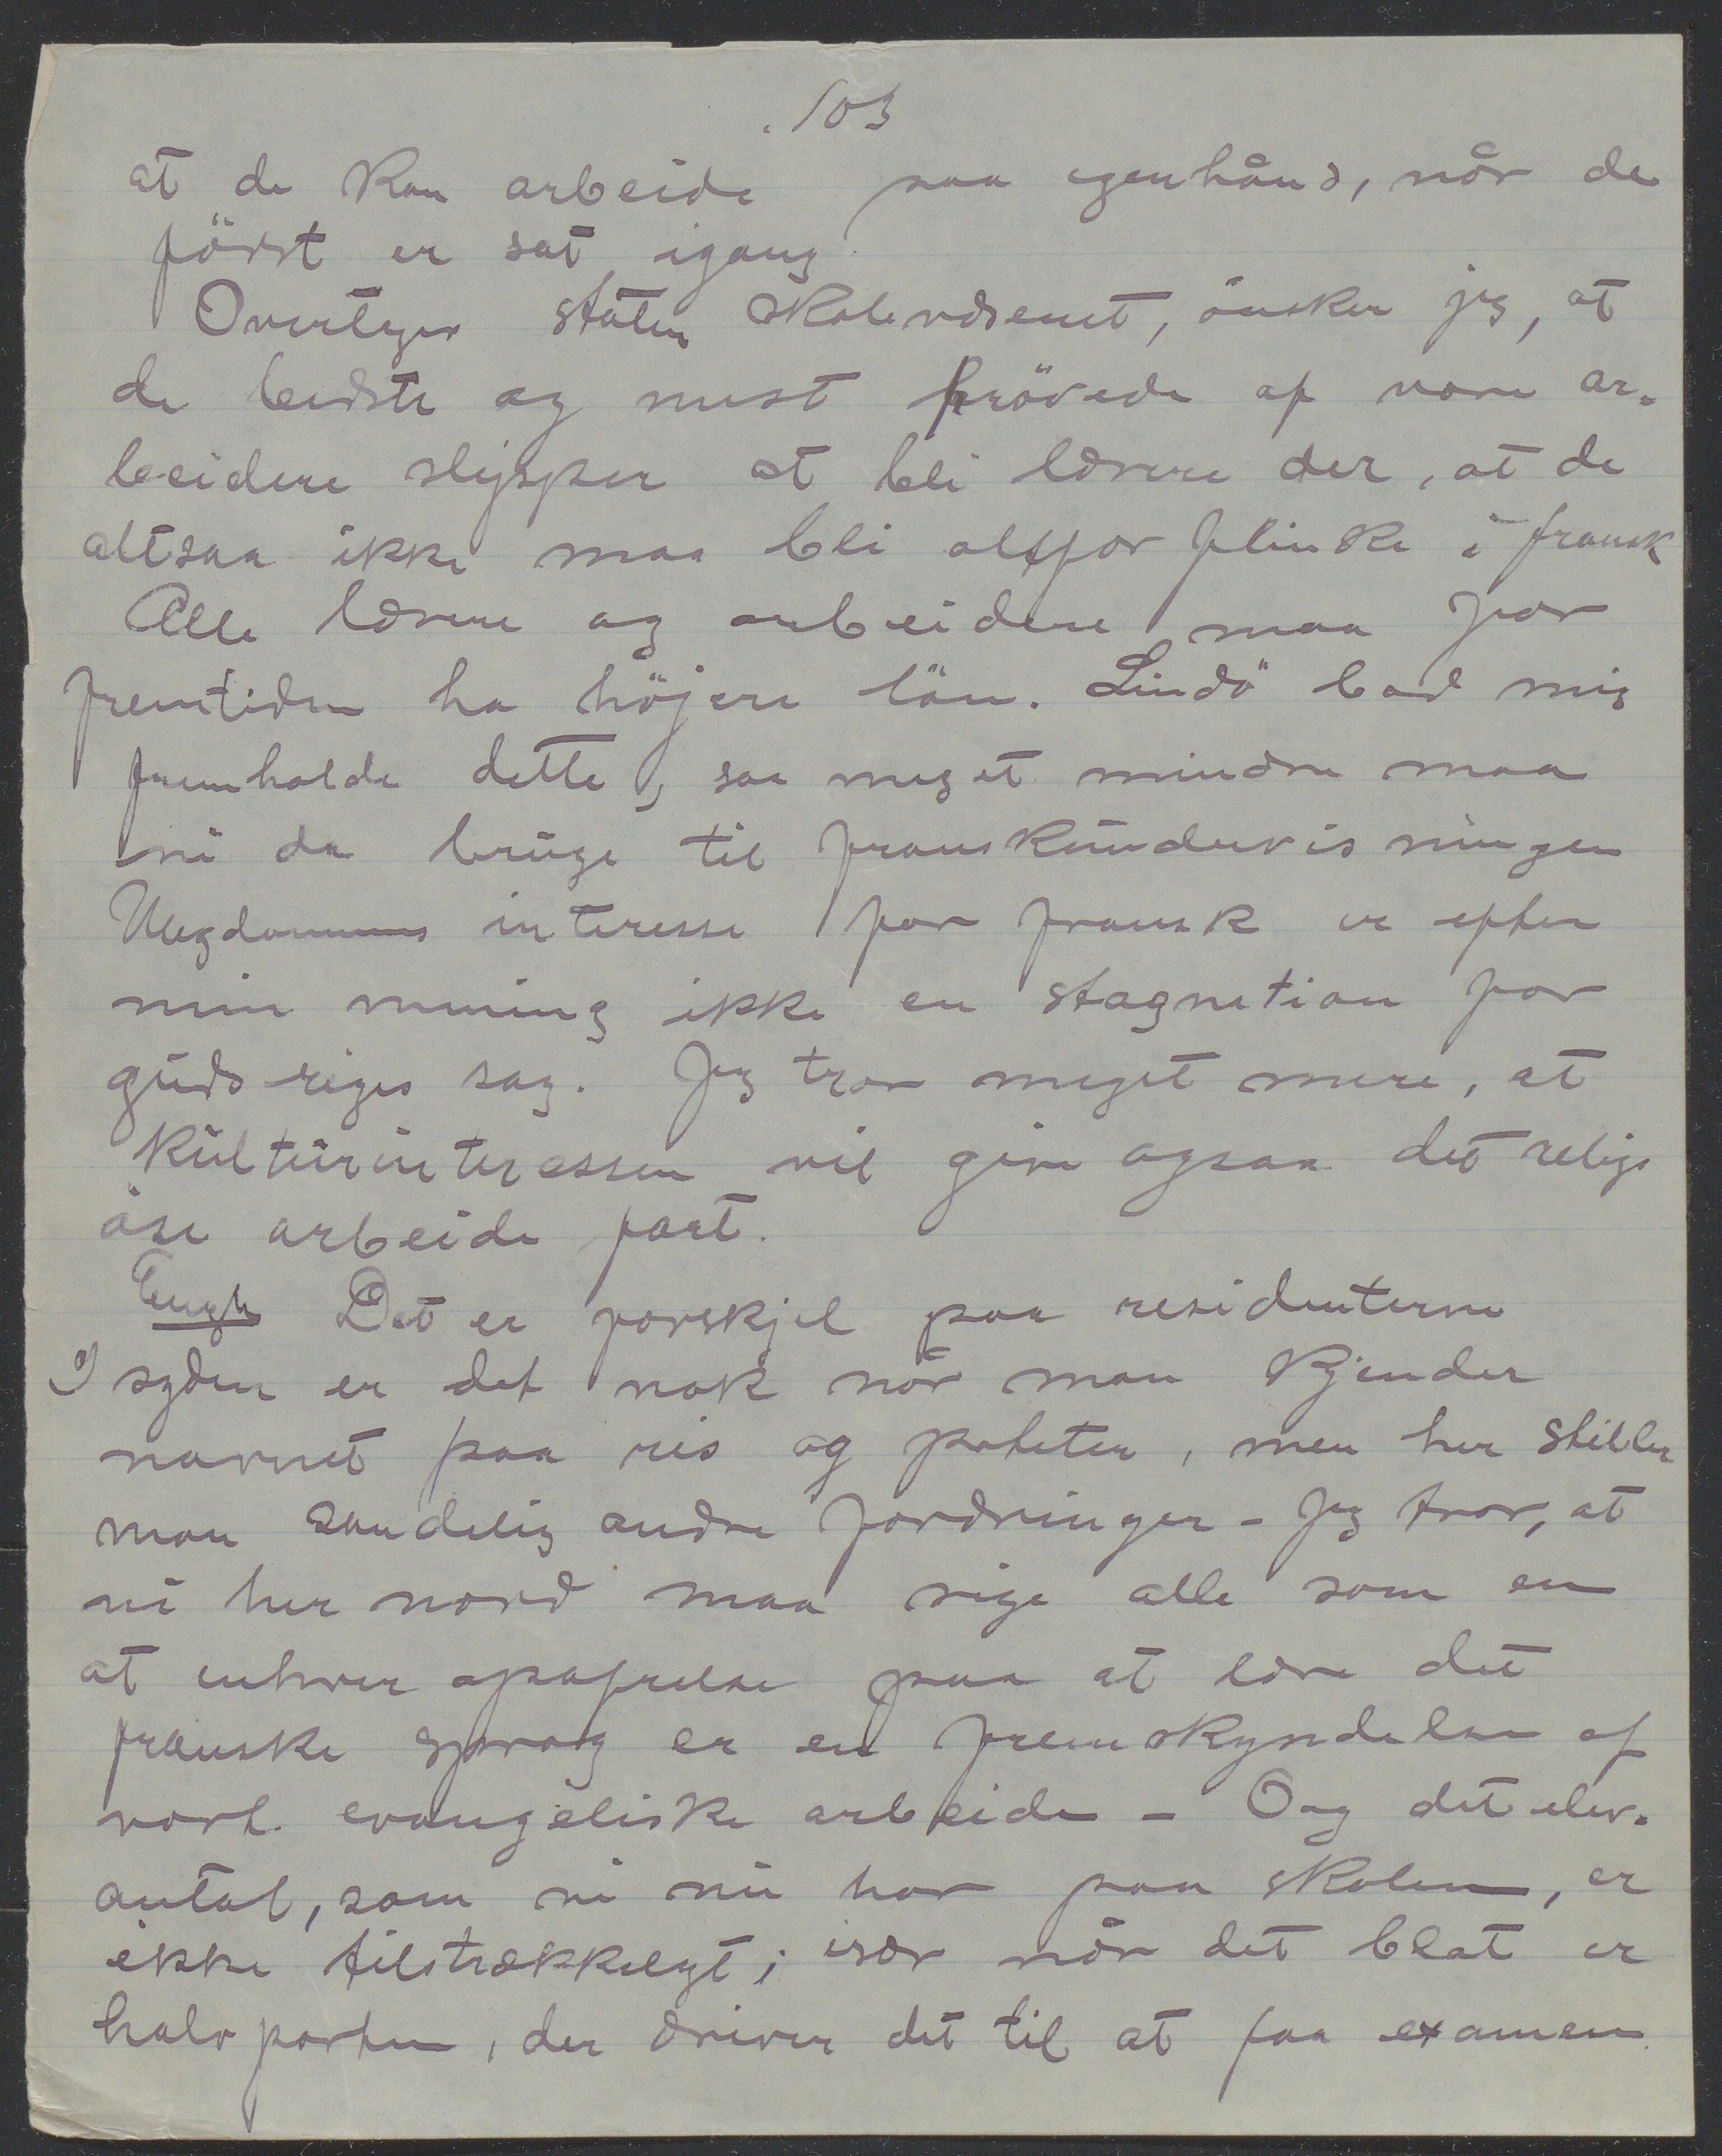 103
at de kan arbeide paa egenhånd, når de
först er sat igang.
Overtager staten skolevæsenet, önsker jeg, at
de bedste og mest prövede af vore ar-
beidere slipper at bli lærere der, at de
altsaa ikke maa bli altfor flinke i fransk
Alle lærere og arbeidere maa for
fremtiden ha höjere lön. Lindö bad mig
fremholde dette, saa meget mindre maa
vi da bruge til franskundervisningen
Ungdommens interesse for fransk er efter
min mening ikke en stagnation for
guds riges sag. Jeg tror meget mere, at
kulturinteressen vil give ogsaa det religi
öse arbeide fart.
Engh Det er forskjel paa residenterne
I syden er det nok når man kjender
navnet paa ris og poteter, men her stiller
man sandelig andre fordringer - Jeg tror, at
vi her nord maa sige alle som en
at enhver opofrelse paa at lære det
franske sprog er en fremskyndelse af
vort evangeliske arbeide - Og det elev-
antal, som vi nu har paa skolen, er
ikke tilstrækkeligt; især når det blot er
halvparten, der driver det til at faa examen